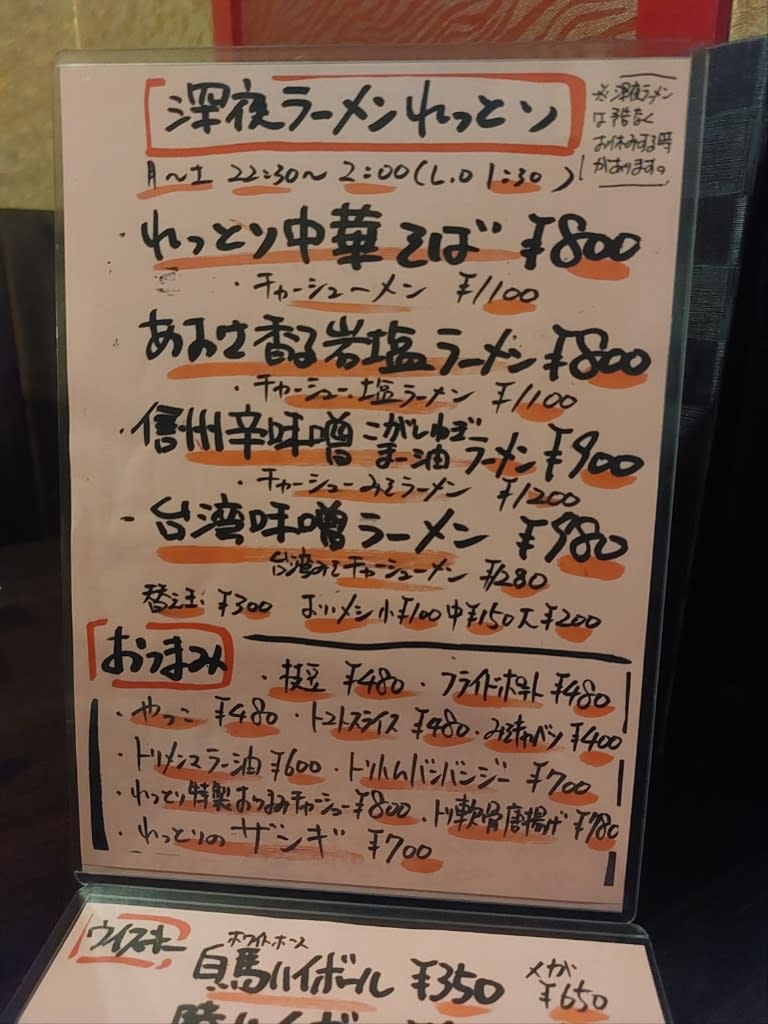 深夜ラーメンれっとソ
※深夜ラーメン
は予告なく
お休みする時
があります。
月〜土 22:30〜 2:00(L.O 1:30)
・れっとソ中華そば ¥800
・チャーシューメン ¥1100
・あおさ香る岩塩ラーメン ¥800
・チャーシュー塩ラーメン ¥1100
・信州辛味噌 こがしねぎ
まー油 ラーメン ¥900
・チャーシューみそラーメン ¥1200
・台湾味噌ラーメン ¥980
台湾みそチャーシューメン ¥1280
替え玉 ¥300 おいメシ 小¥100 中¥150 大¥200
おつまみ
・枝豆 ¥480 ・フライドポテト ¥480
・やっこ ¥480 ・トマトスライス ¥480 ・みそキャベツ ¥400
・トリメンマラー油 ¥600 ・トリハムバンバンジー ¥700
・れっとソ特製おつまみチャーシュー ¥800 ・トリ軟骨唐揚げ ¥780
・れっとソのザンギ ¥700
ウイスキー
ホワイトホース
白馬ハイボール ¥350 メガ ¥650